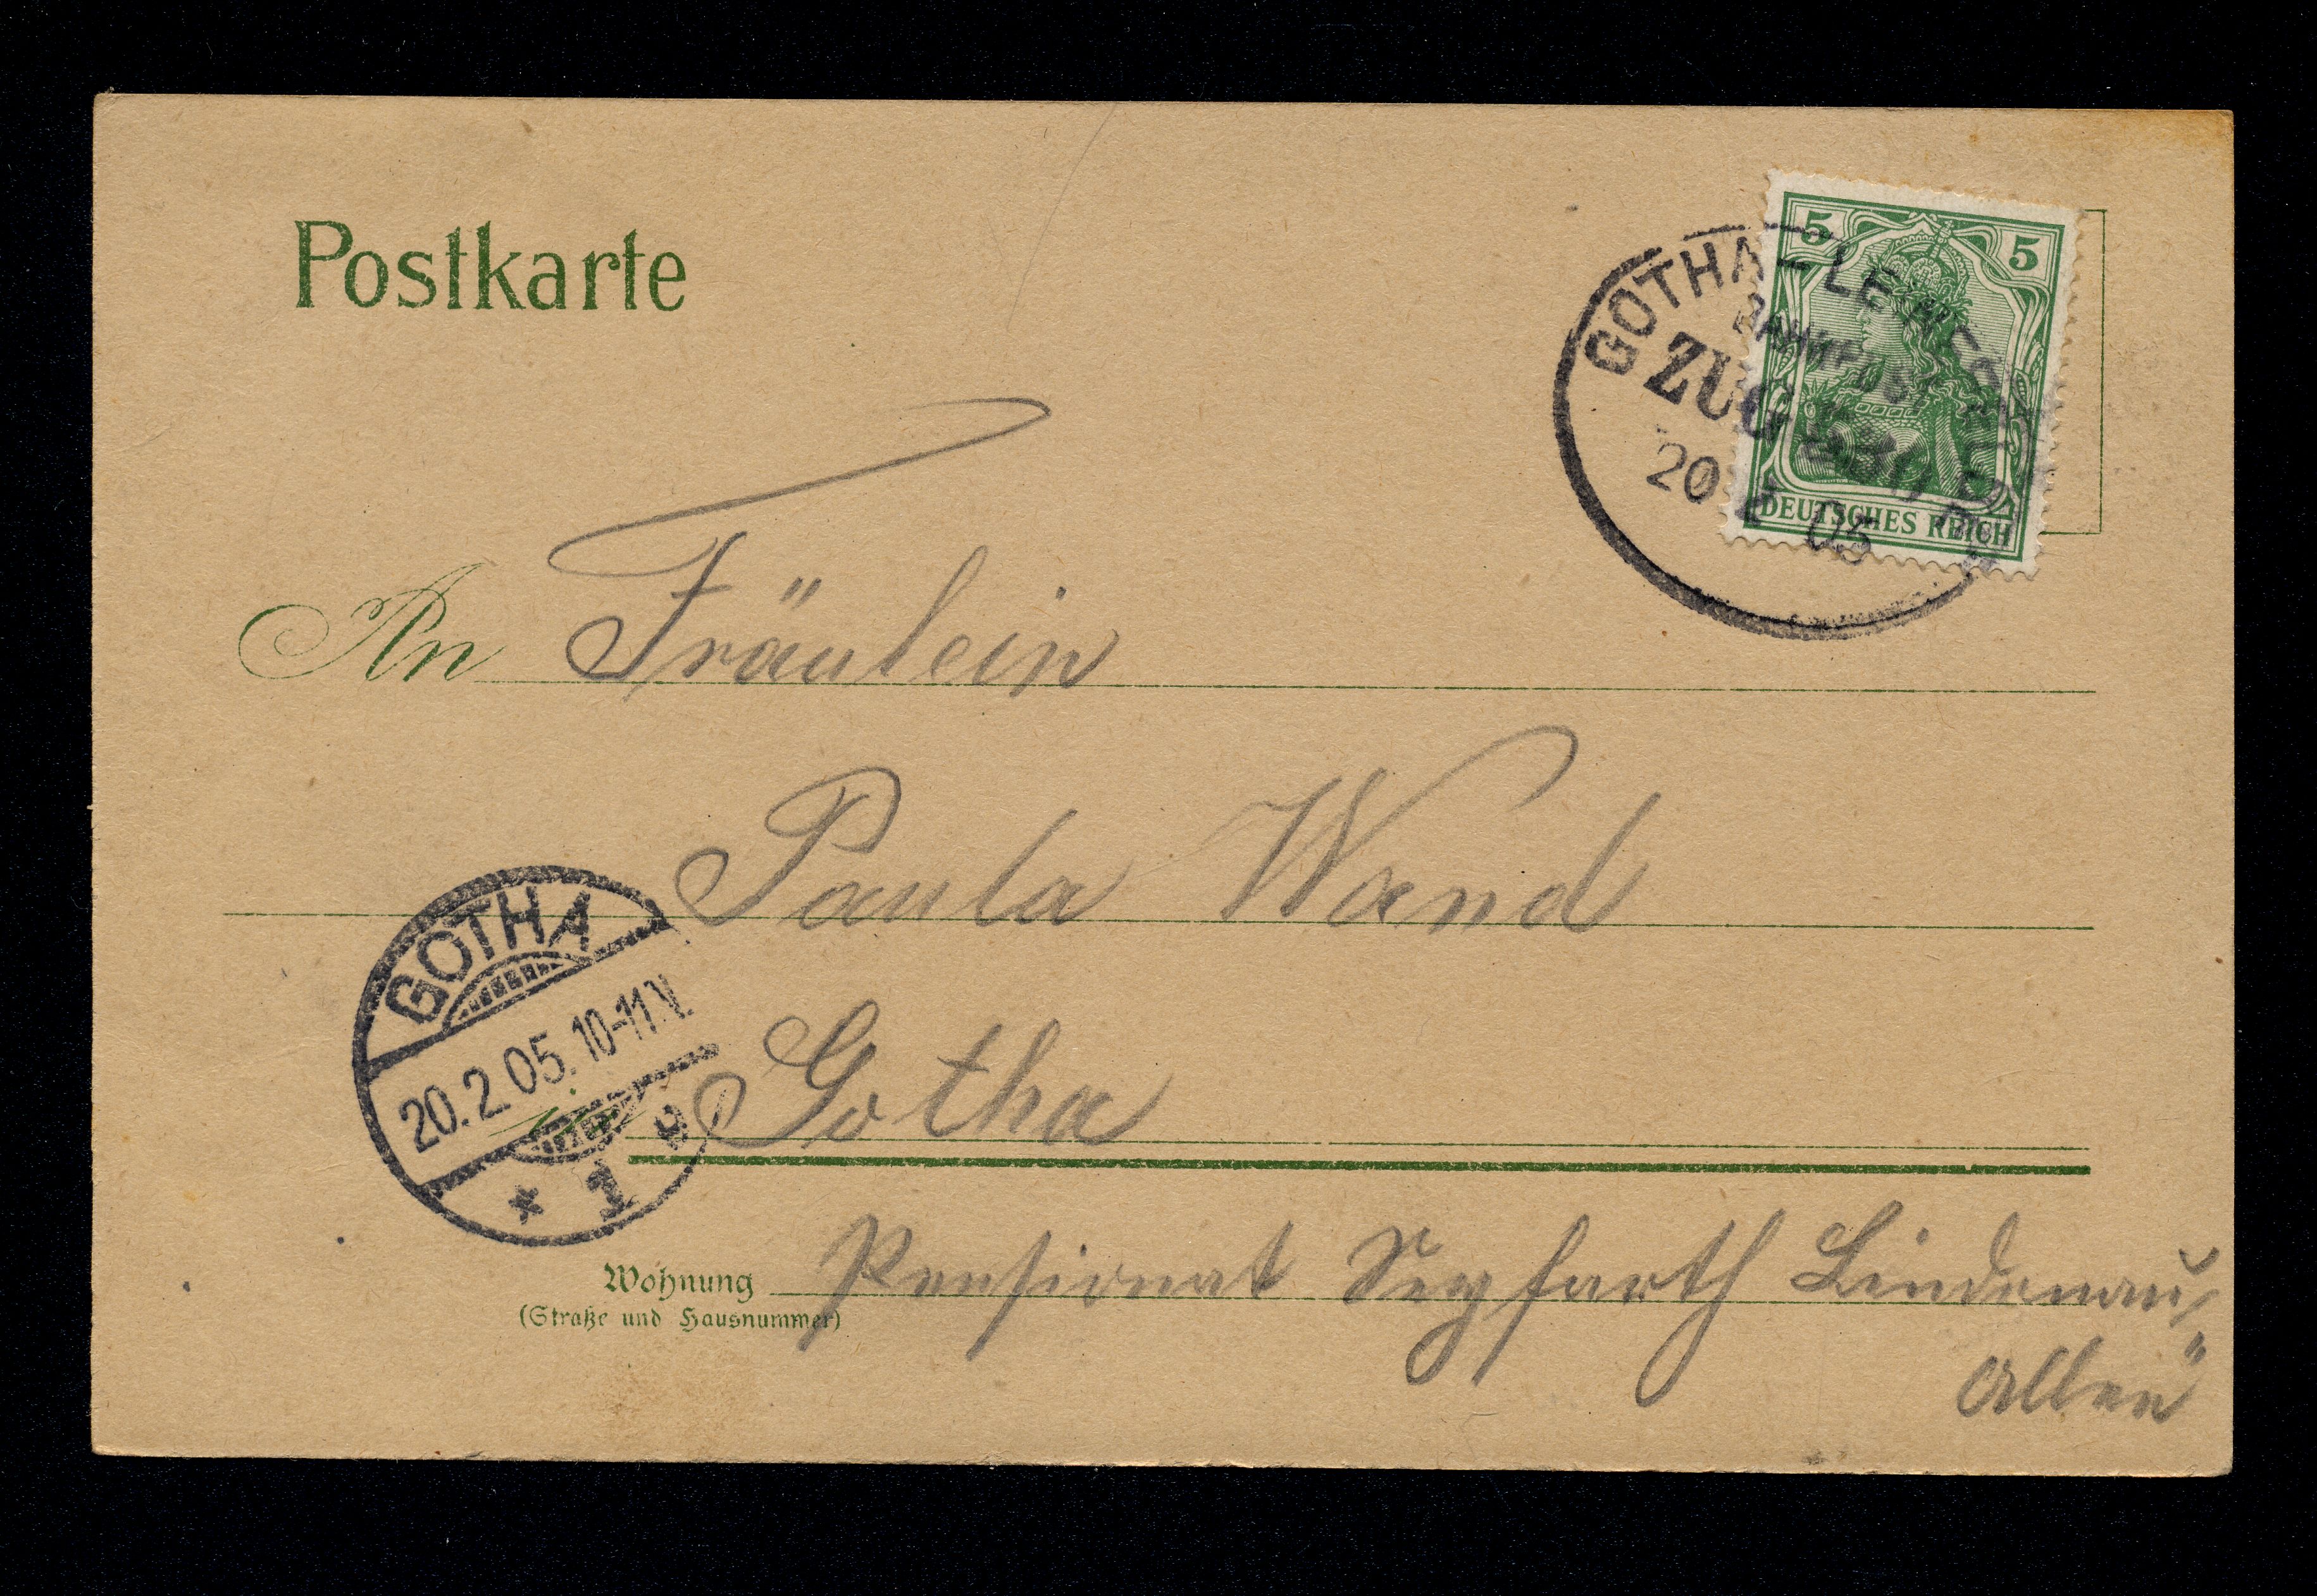 Postkarte
5 5
DEUTSCHES REICH
GOTHA-LEINEFELDE
BAHNPOST
ZUG
20 2 05
An Fräulein
Paula Wand
in Gotha
GOTHA
20.2.05.10-11V.
* 1
Wohnung Pensionat Seyfarth Lindenau
(Straße und Hausnummer)
Allee"